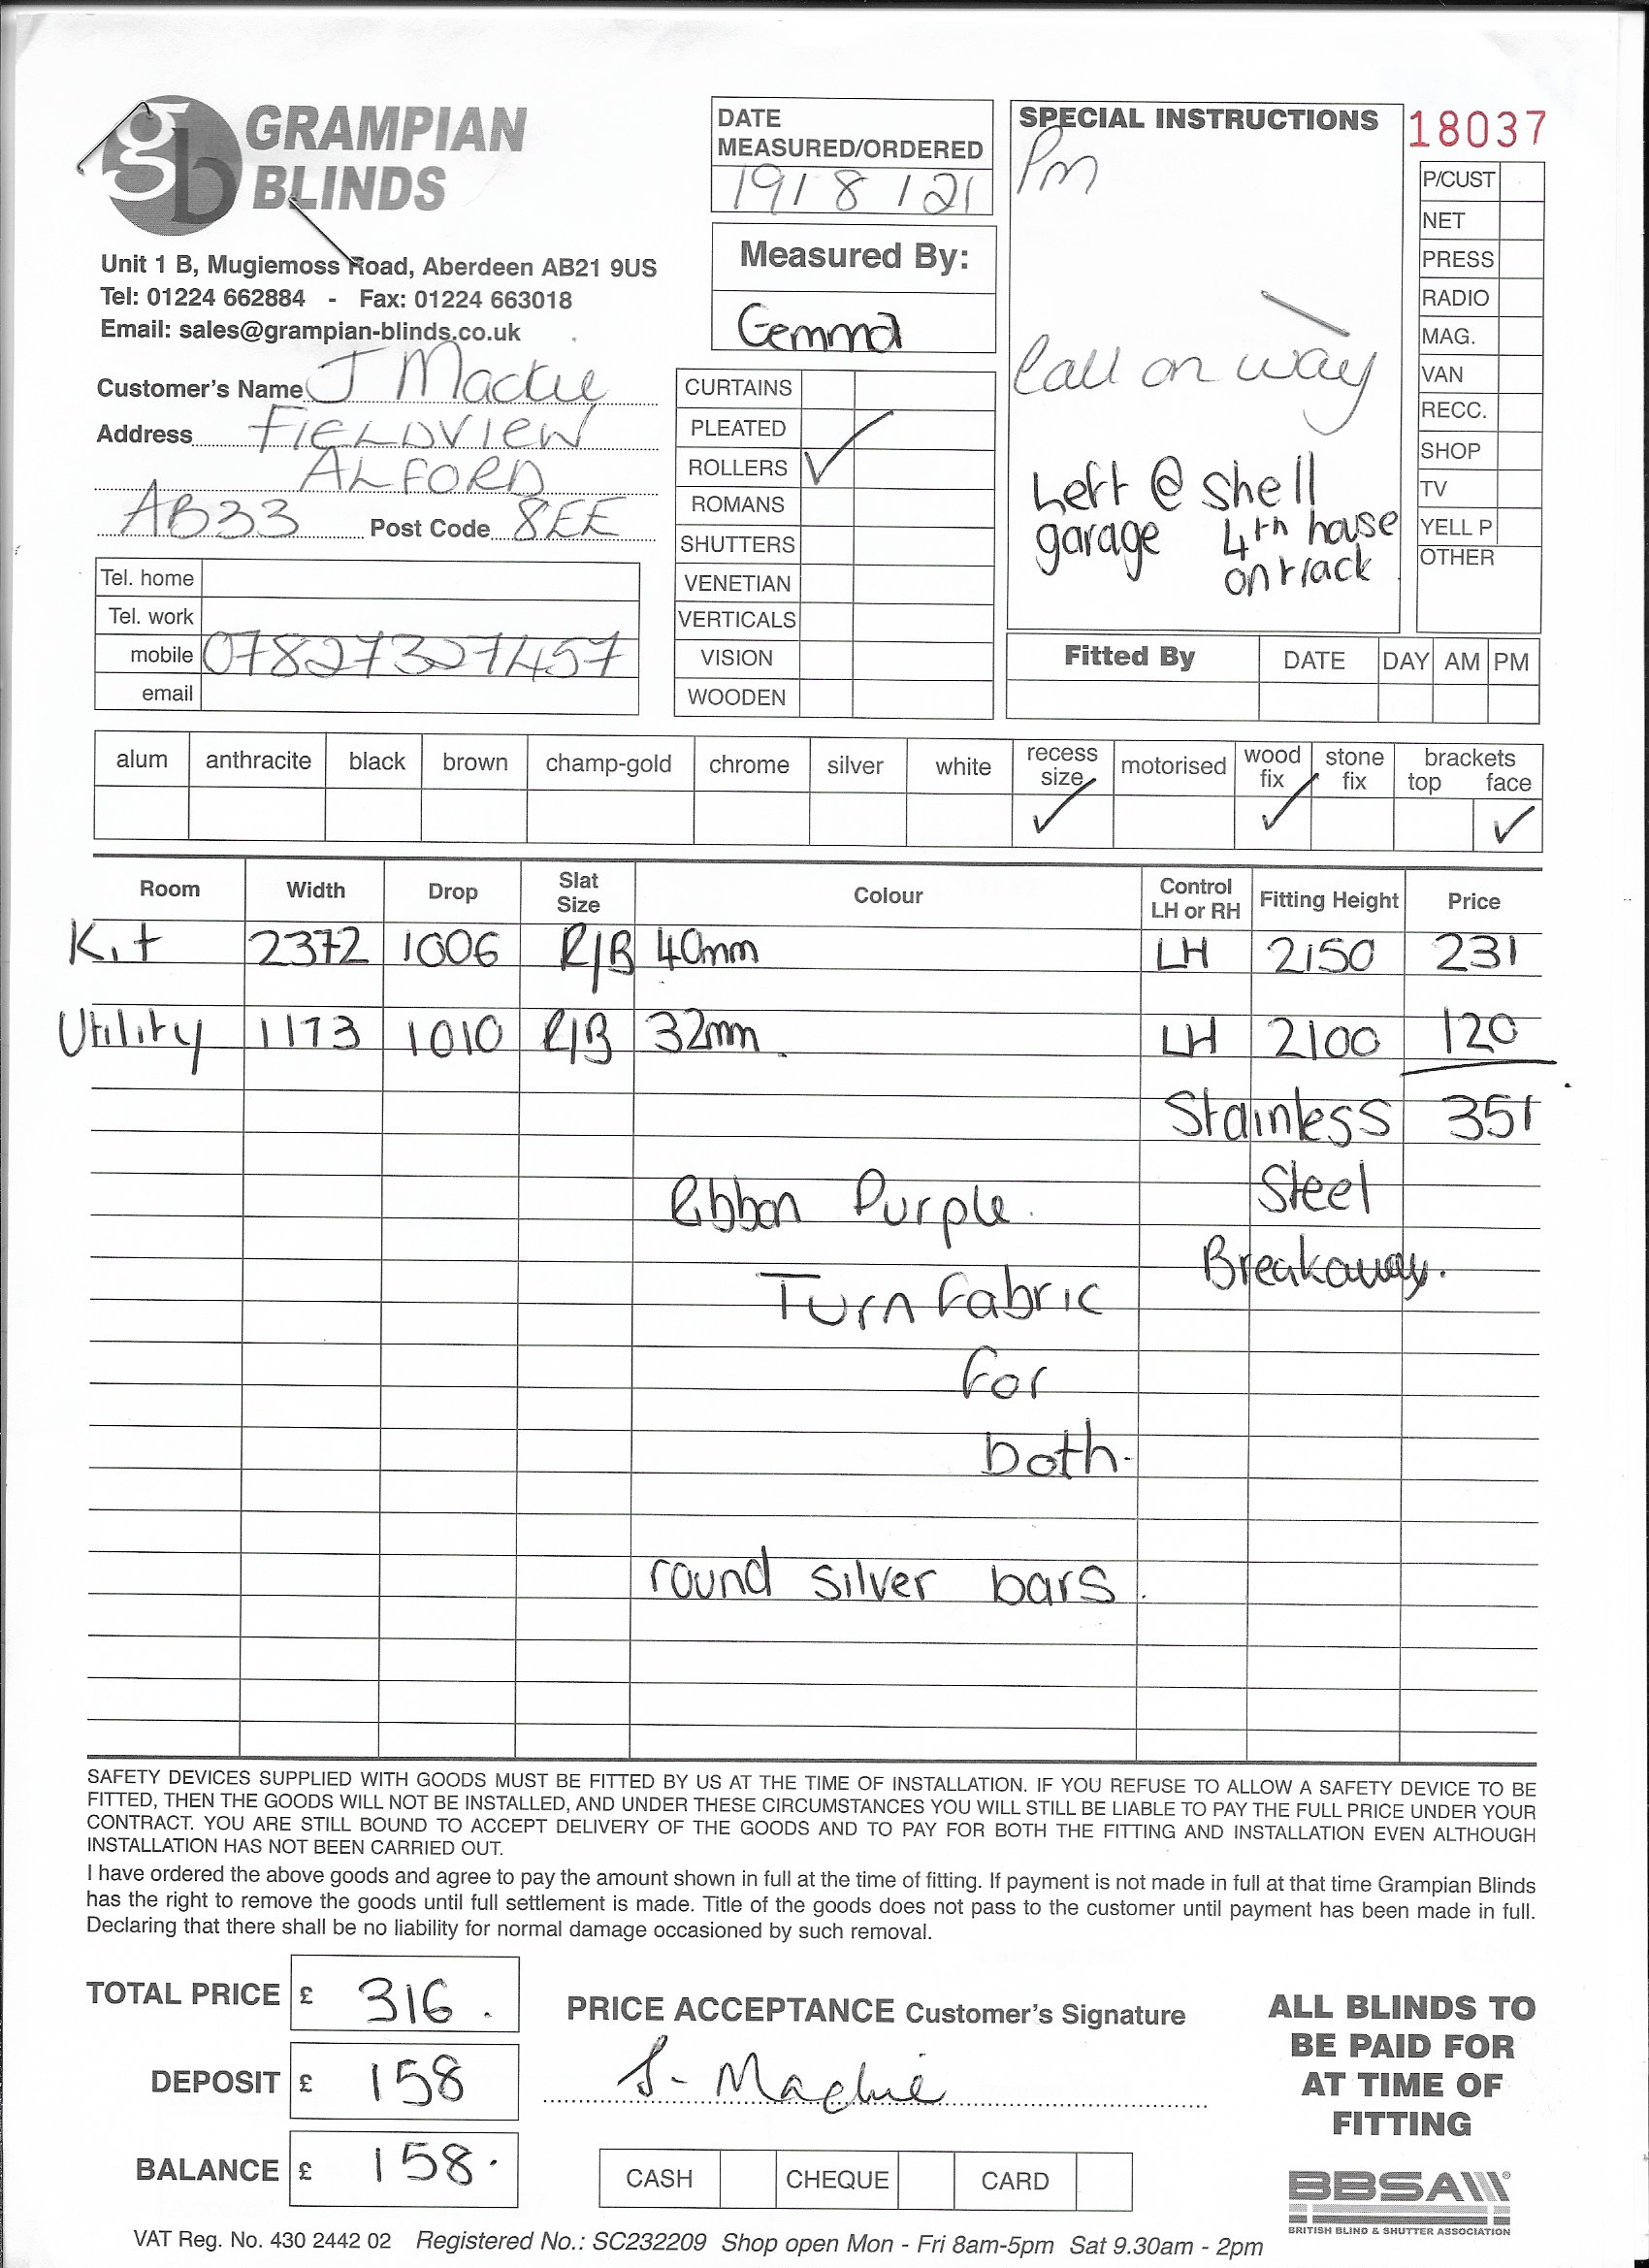 gb GRAMPIAN BLINDS
Unit 1 B, Mugiemoss Road, Aberdeen AB21 9US
Tel: 01224 662884 - Fax: 01224 663018
Email: sales@grampian-blinds.co.uk
Customer's Name J Mackie
Address FIELDVIEW
ALFORD
AB33 Post Code 8EE
Tel. home
Tel. work
mobile 07827327457
email
DATE
MEASURED/ORDERED
19/8/21
Measured By:
Gemma
CURTAINS
PLEATED
ROLLERS ✓
ROMANS
SHUTTERS
VENETIAN
VERTICALS
VISION
WOODEN
SPECIAL INSTRUCTIONS
Pm
Call on way
Left @ shell
garage 4th house
on track
18037
P/CUST
NET
PRESS
RADIO
MAG.
VAN
RECC.
SHOP
TV
YELL P
OTHER
Fitted By DATE DAY AM PM
alum anthracite black brown champ-gold chrome silver white recess size ✓ motorised wood fix ✓ stone fix brackets top face ✓
Room Width Drop Slat Size Colour Control LH or RH Fitting Height Price
Kit 2372 1006 R/B 40mm LH 2150 231
Utility 1173 1010 R/B 32mm. LH 2100 120
Stainless 351
Ribbon Purple. Steel
Turn Fabric Breakaway.
For
both.
round silver bars.
SAFETY DEVICES SUPPLIED WITH GOODS MUST BE FITTED BY US AT THE TIME OF INSTALLATION. IF YOU REFUSE TO ALLOW A SAFETY DEVICE TO BE
FITTED, THEN THE GOODS WILL NOT BE INSTALLED, AND UNDER THESE CIRCUMSTANCES YOU WILL STILL BE LIABLE TO PAY THE FULL PRICE UNDER YOUR
CONTRACT. YOU ARE STILL BOUND TO ACCEPT DELIVERY OF THE GOODS AND TO PAY FOR BOTH THE FITTING AND INSTALLATION EVEN ALTHOUGH
INSTALLATION HAS NOT BEEN CARRIED OUT.
I have ordered the above goods and agree to pay the amount shown in full at the time of fitting. If payment is not made in full at that time Grampian Blinds
has the right to remove the goods until full settlement is made. Title of the goods does not pass to the customer until payment has been made in full.
Declaring that there shall be no liability for normal damage occasioned by such removal.
TOTAL PRICE £ 316.
DEPOSIT £ 158
BALANCE £ 158.
PRICE ACCEPTANCE Customer's Signature
J- Mackie
CASH CHEQUE CARD
ALL BLINDS TO
BE PAID FOR
AT TIME OF
FITTING
BBSA
BRITISH BLIND & SHUTTER ASSOCIATION
VAT Reg. No. 430 2442 02 Registered No.: SC232209 Shop open Mon - Fri 8am-5pm Sat 9.30am - 2pm